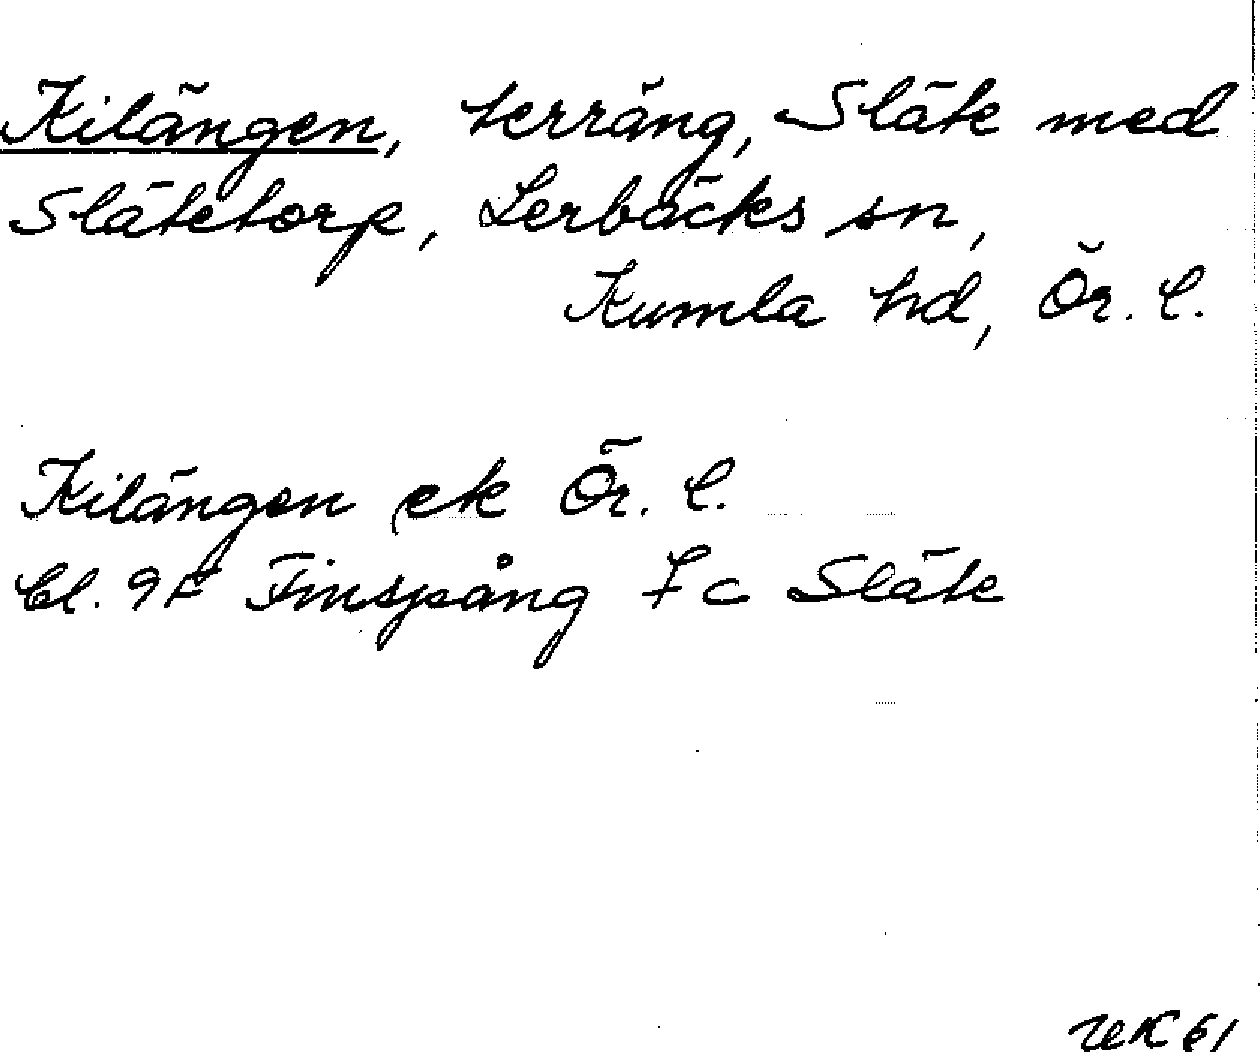 Kilängen, terräng, Släte med
Slätetorp, Lerbäcks sn,
Kumla hd, Ör. l.
Kilängen ek Ör. l.
bl. 9F Finspång 7c Släte